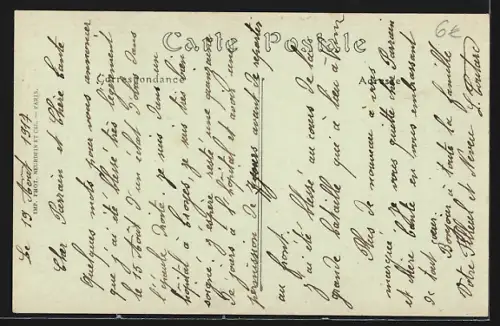 Carte Postale
Correspondance
Le 19 Août 1917
Cher Parrain et Chère tante
Quelques mots pour vous annoncer
que j'ai été blessé très légèrement
le 15 Août d'un éclat d'obus dans
l'épaule droite je suis dans un
hôpital à je suis très bien
soigné j'espère resté une quinzaine
de jours a l'hôpital et avoir une
permission de 7 jours avant de repartir
au front.
j'ai été blessé au cours de la
grande bataille qui à lieu à
Plus de nouveau à vous
marqué je vous quitte cher Parrain
et chère tante en vous embrassant
de tout cœur.
Bonjour à toute la famille
Votre Filleul et Neveu
6€